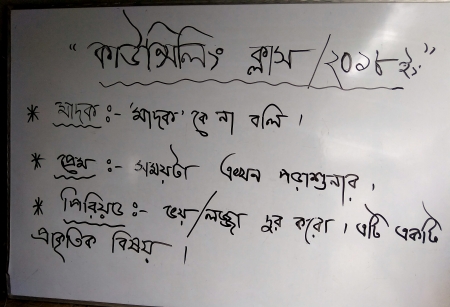 “কাউন্সিলিং ক্লাস/২০১৮ ইং”
* মাদক :- ‘মাদক’ কে না বলি ।
* প্রেম :- সময়টা এখন পড়াশুনার ।
* পিরিয়ড :- ভয়/লজ্জা দুর করো । এটি একটি
প্রাকৃতিক বিষয় ।